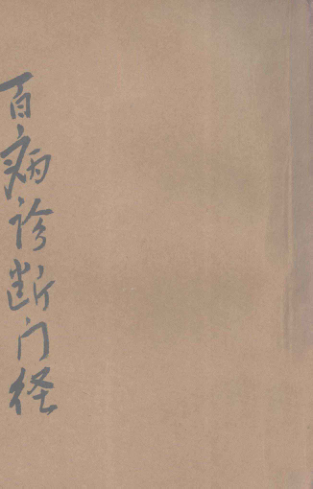 百病诊断门径